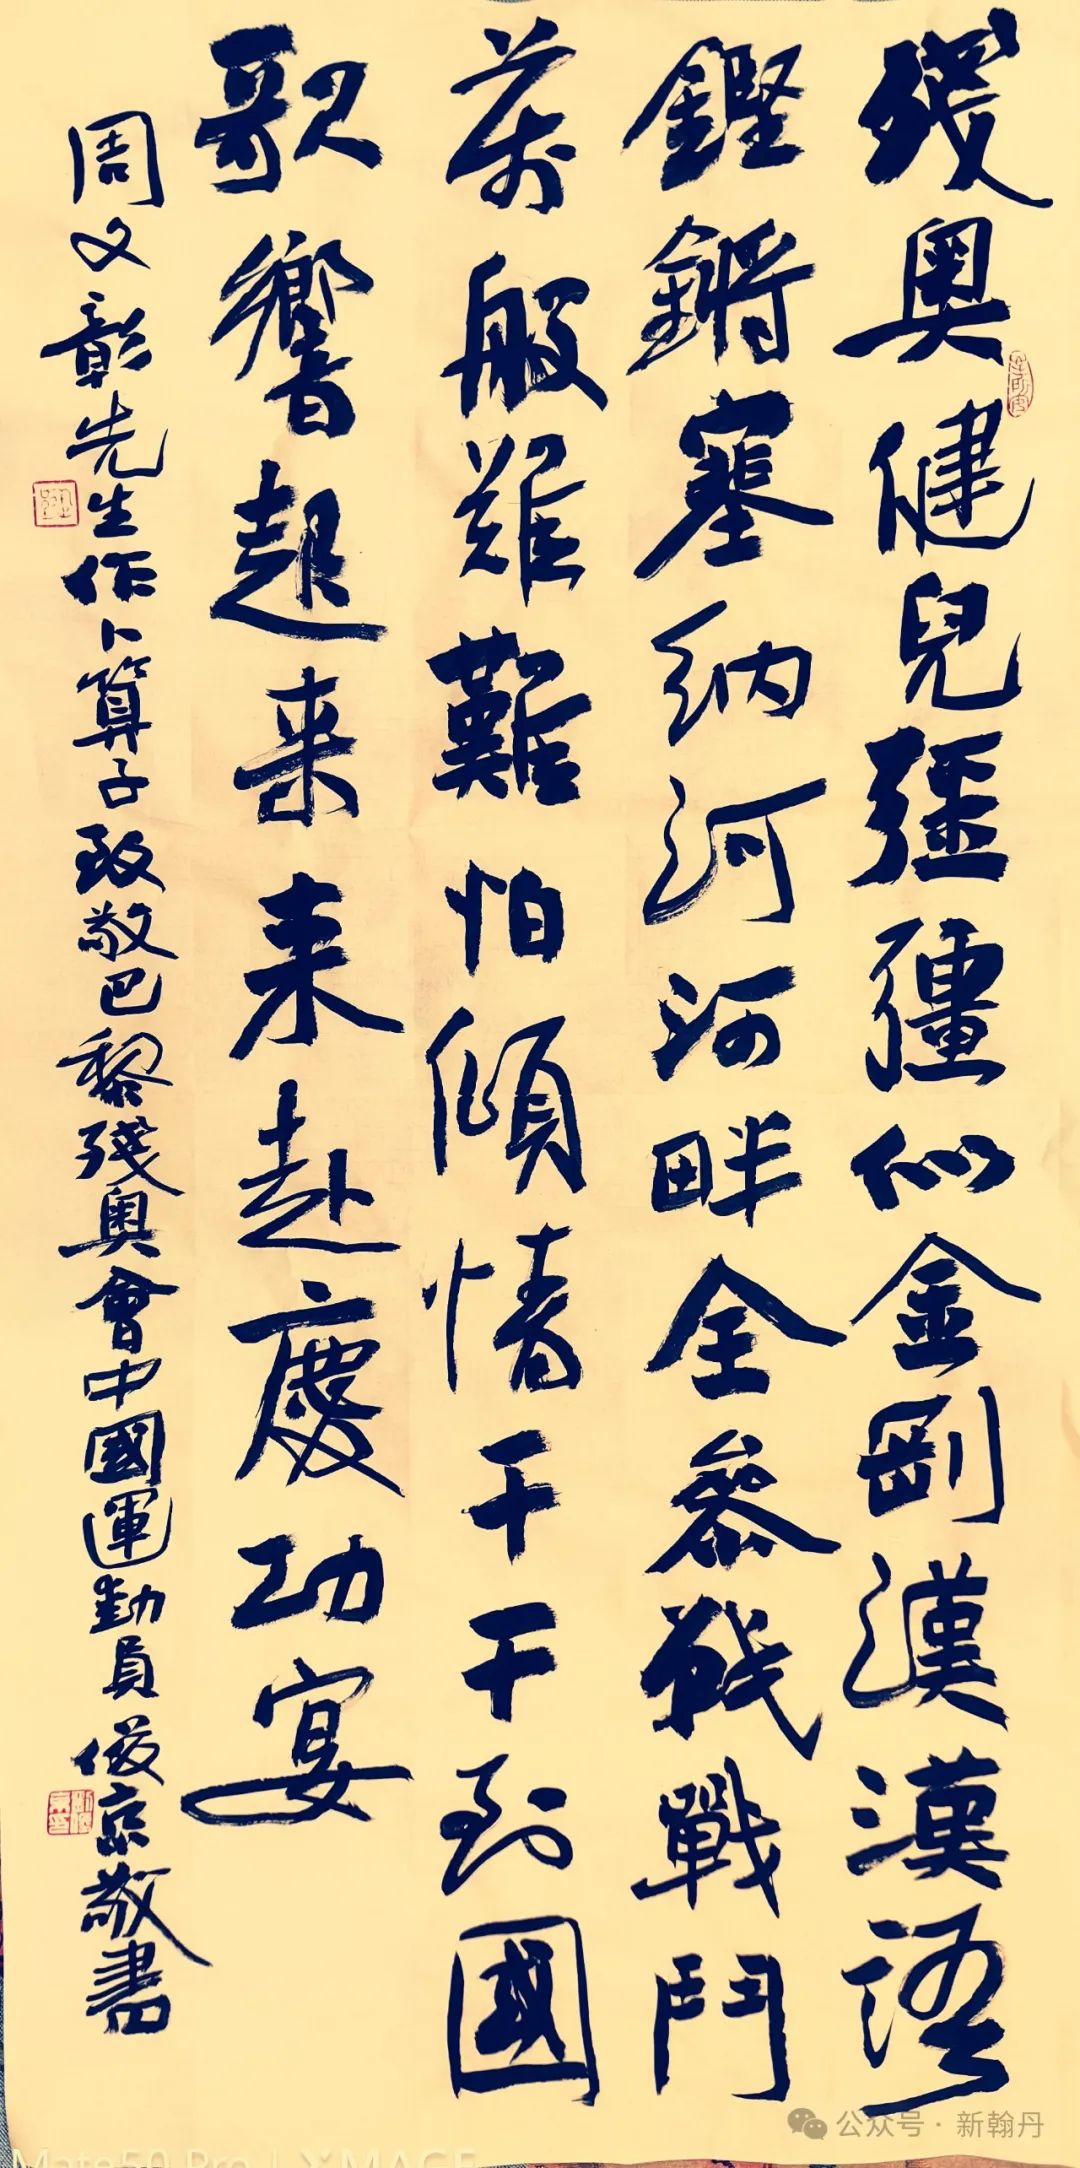 殘奧健兒彊彊似金剛漢漢語
鏗鏘塞納河河畔全參戰戰鬥
萬般難難怕傾情干干到國
歌響起来来赴慶功宴
周文彰先生作卜算子致敬巴黎殘奧會中國運動員俊京敬書
公众号·新翰丹
Mate50 Pro | XMAGE